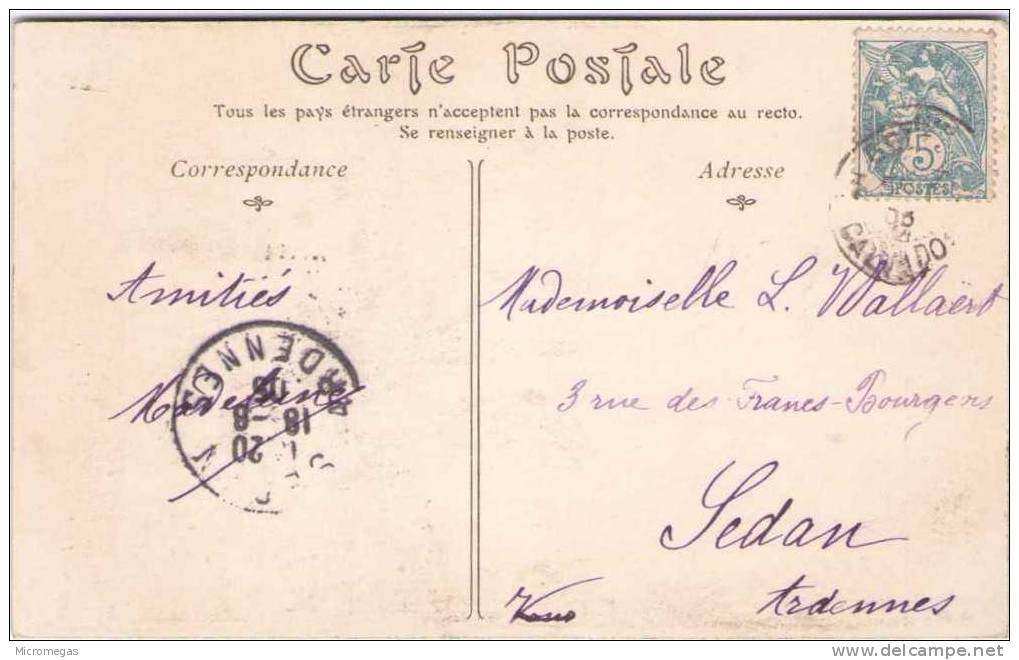 Carte Postale
Tous les pays étrangers n'acceptent pas la correspondance au recto.
Se renseigner à la poste.
Correspondance
Adresse
5c
POSTES
06
CALVADOS
Amitiés
Madeleine
ARDENNES
20
18 -8
06
Mademoiselle L. Wallaërt
3 rue des Francs-Bourgeois
Sedan
Ardennes
Micromegas
delcampe.net